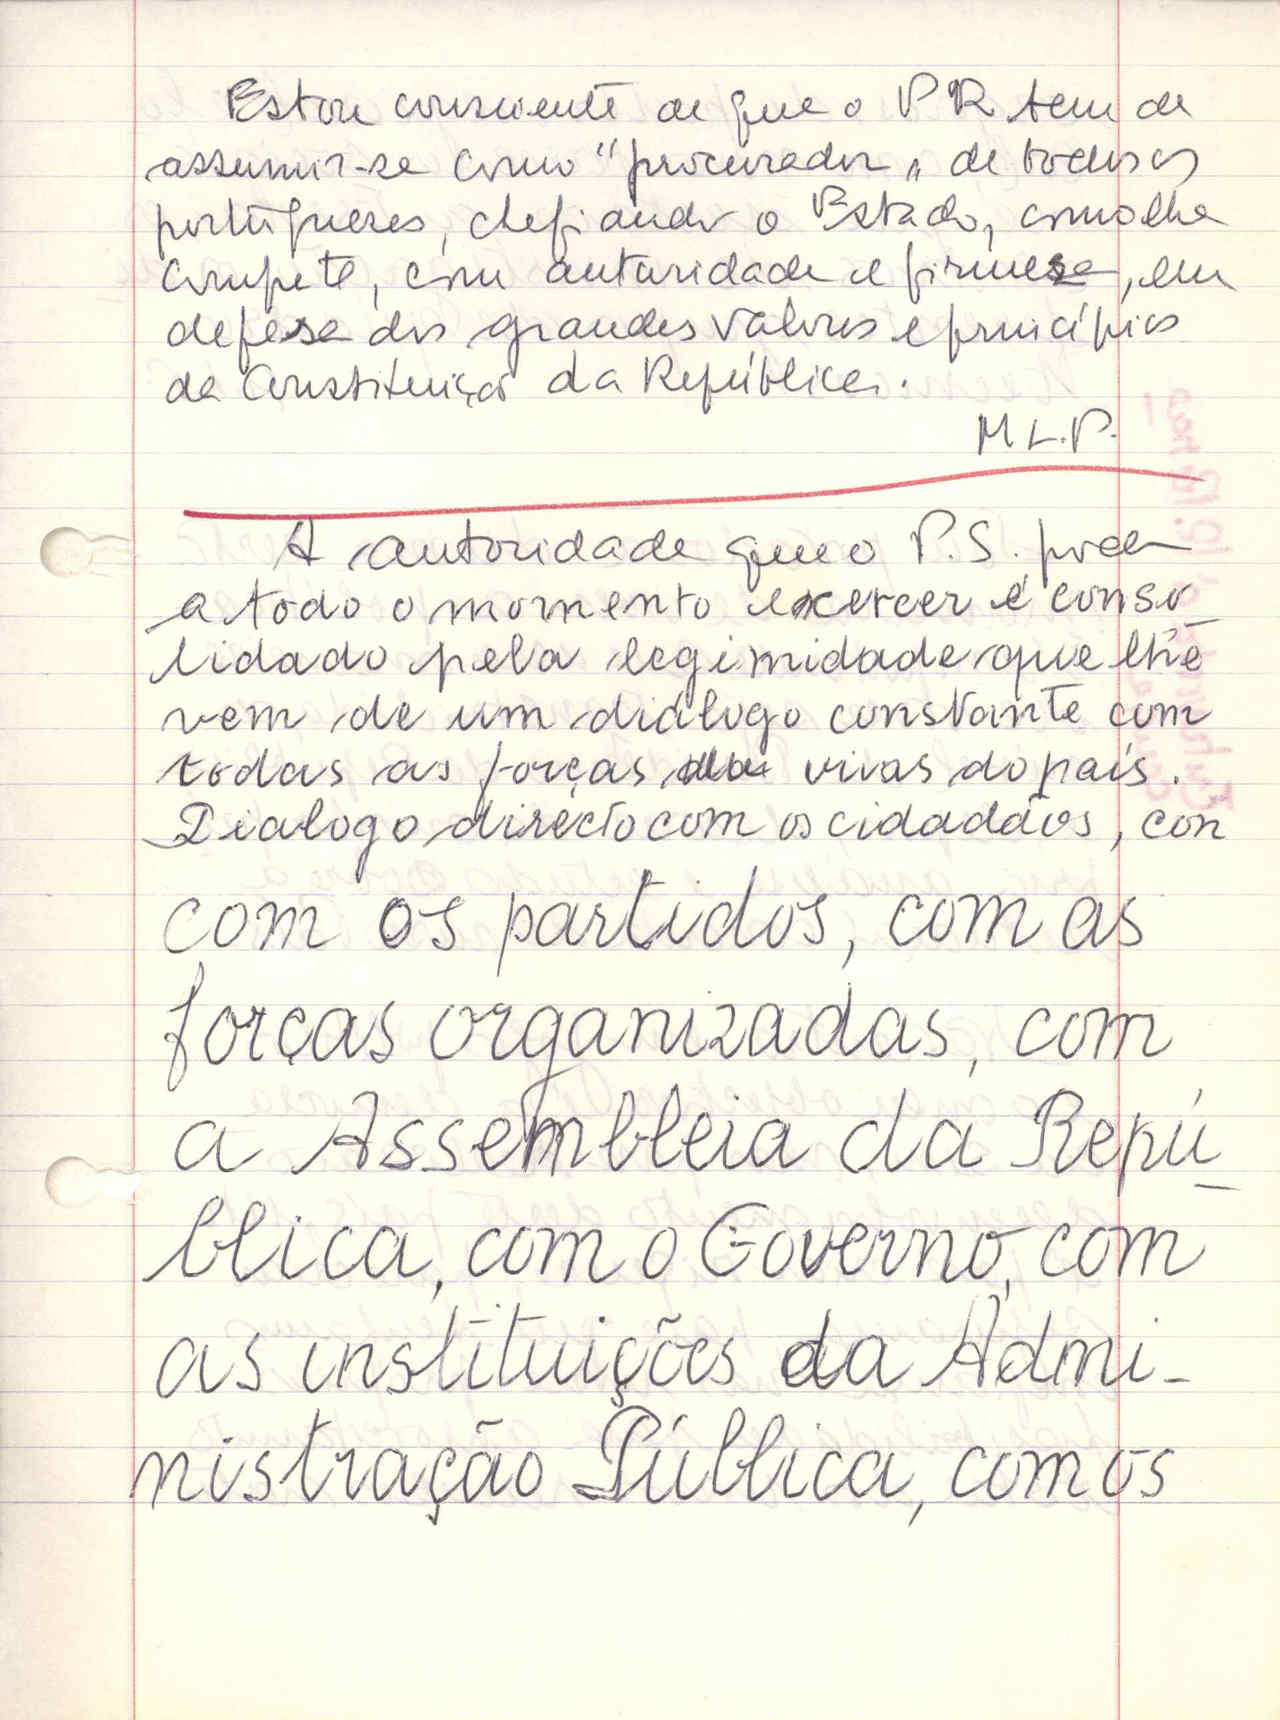 Estou consciente de que o PR tem de
assumir-se como "procurador" de todos os
portugueses, chefiando o Estado, como lhe
compete, com autoridade e firmeza, em
defesa dos grandes valores e princípios
da Constituição da República.
M L.P.
A autoridade que o P.S. pode
a todo o momento exercer é conso
lidado pela legimidade que lhe
vem de um diálogo constante com
todas as forças vivas do país.
Dialogo directo com os cidadãos, con
com os partidos, com as
forças organizadas, com
a Assembleia da Repú
blica, com o Governo, com
as instituições da Admi-
nistração Pública, com os